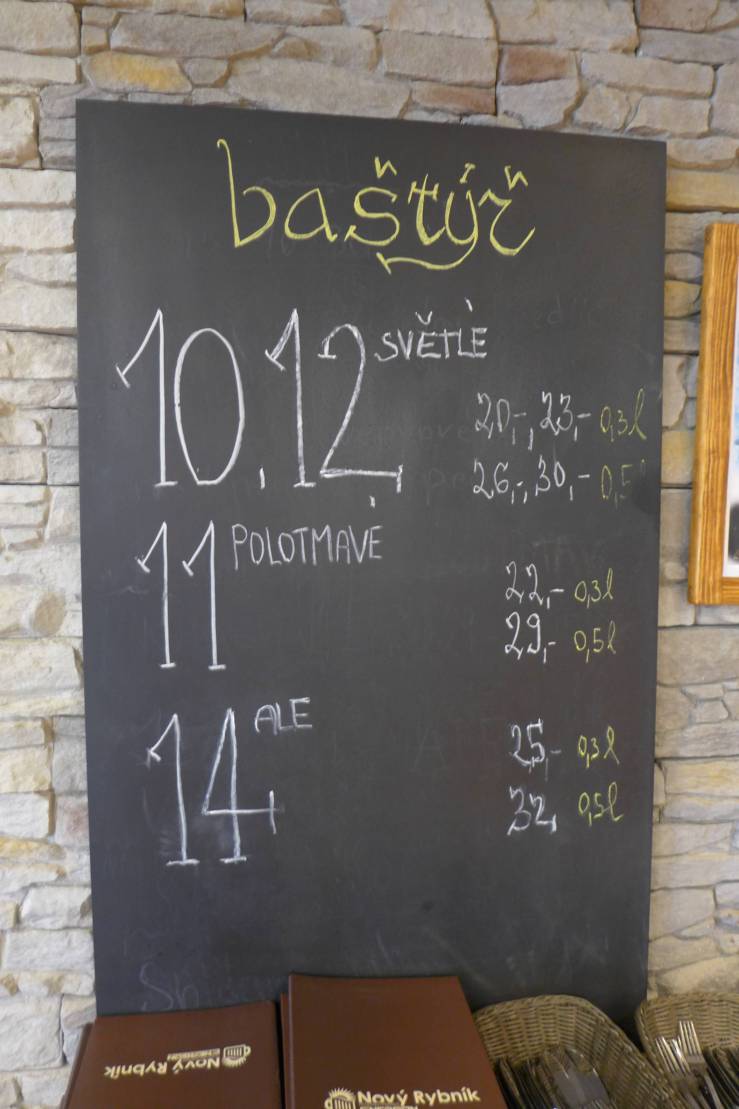 baštýř
10, 12 SVĚTLÉ
20,-, 23,- 0,3l
26,-, 30,- 0,5l
11 POLOTMAVÉ
22,- 0,3l
29,- 0,5l
14 ALE
25,- 0,3l
32, 0,5l
Nový Rybník
Nový Rybník